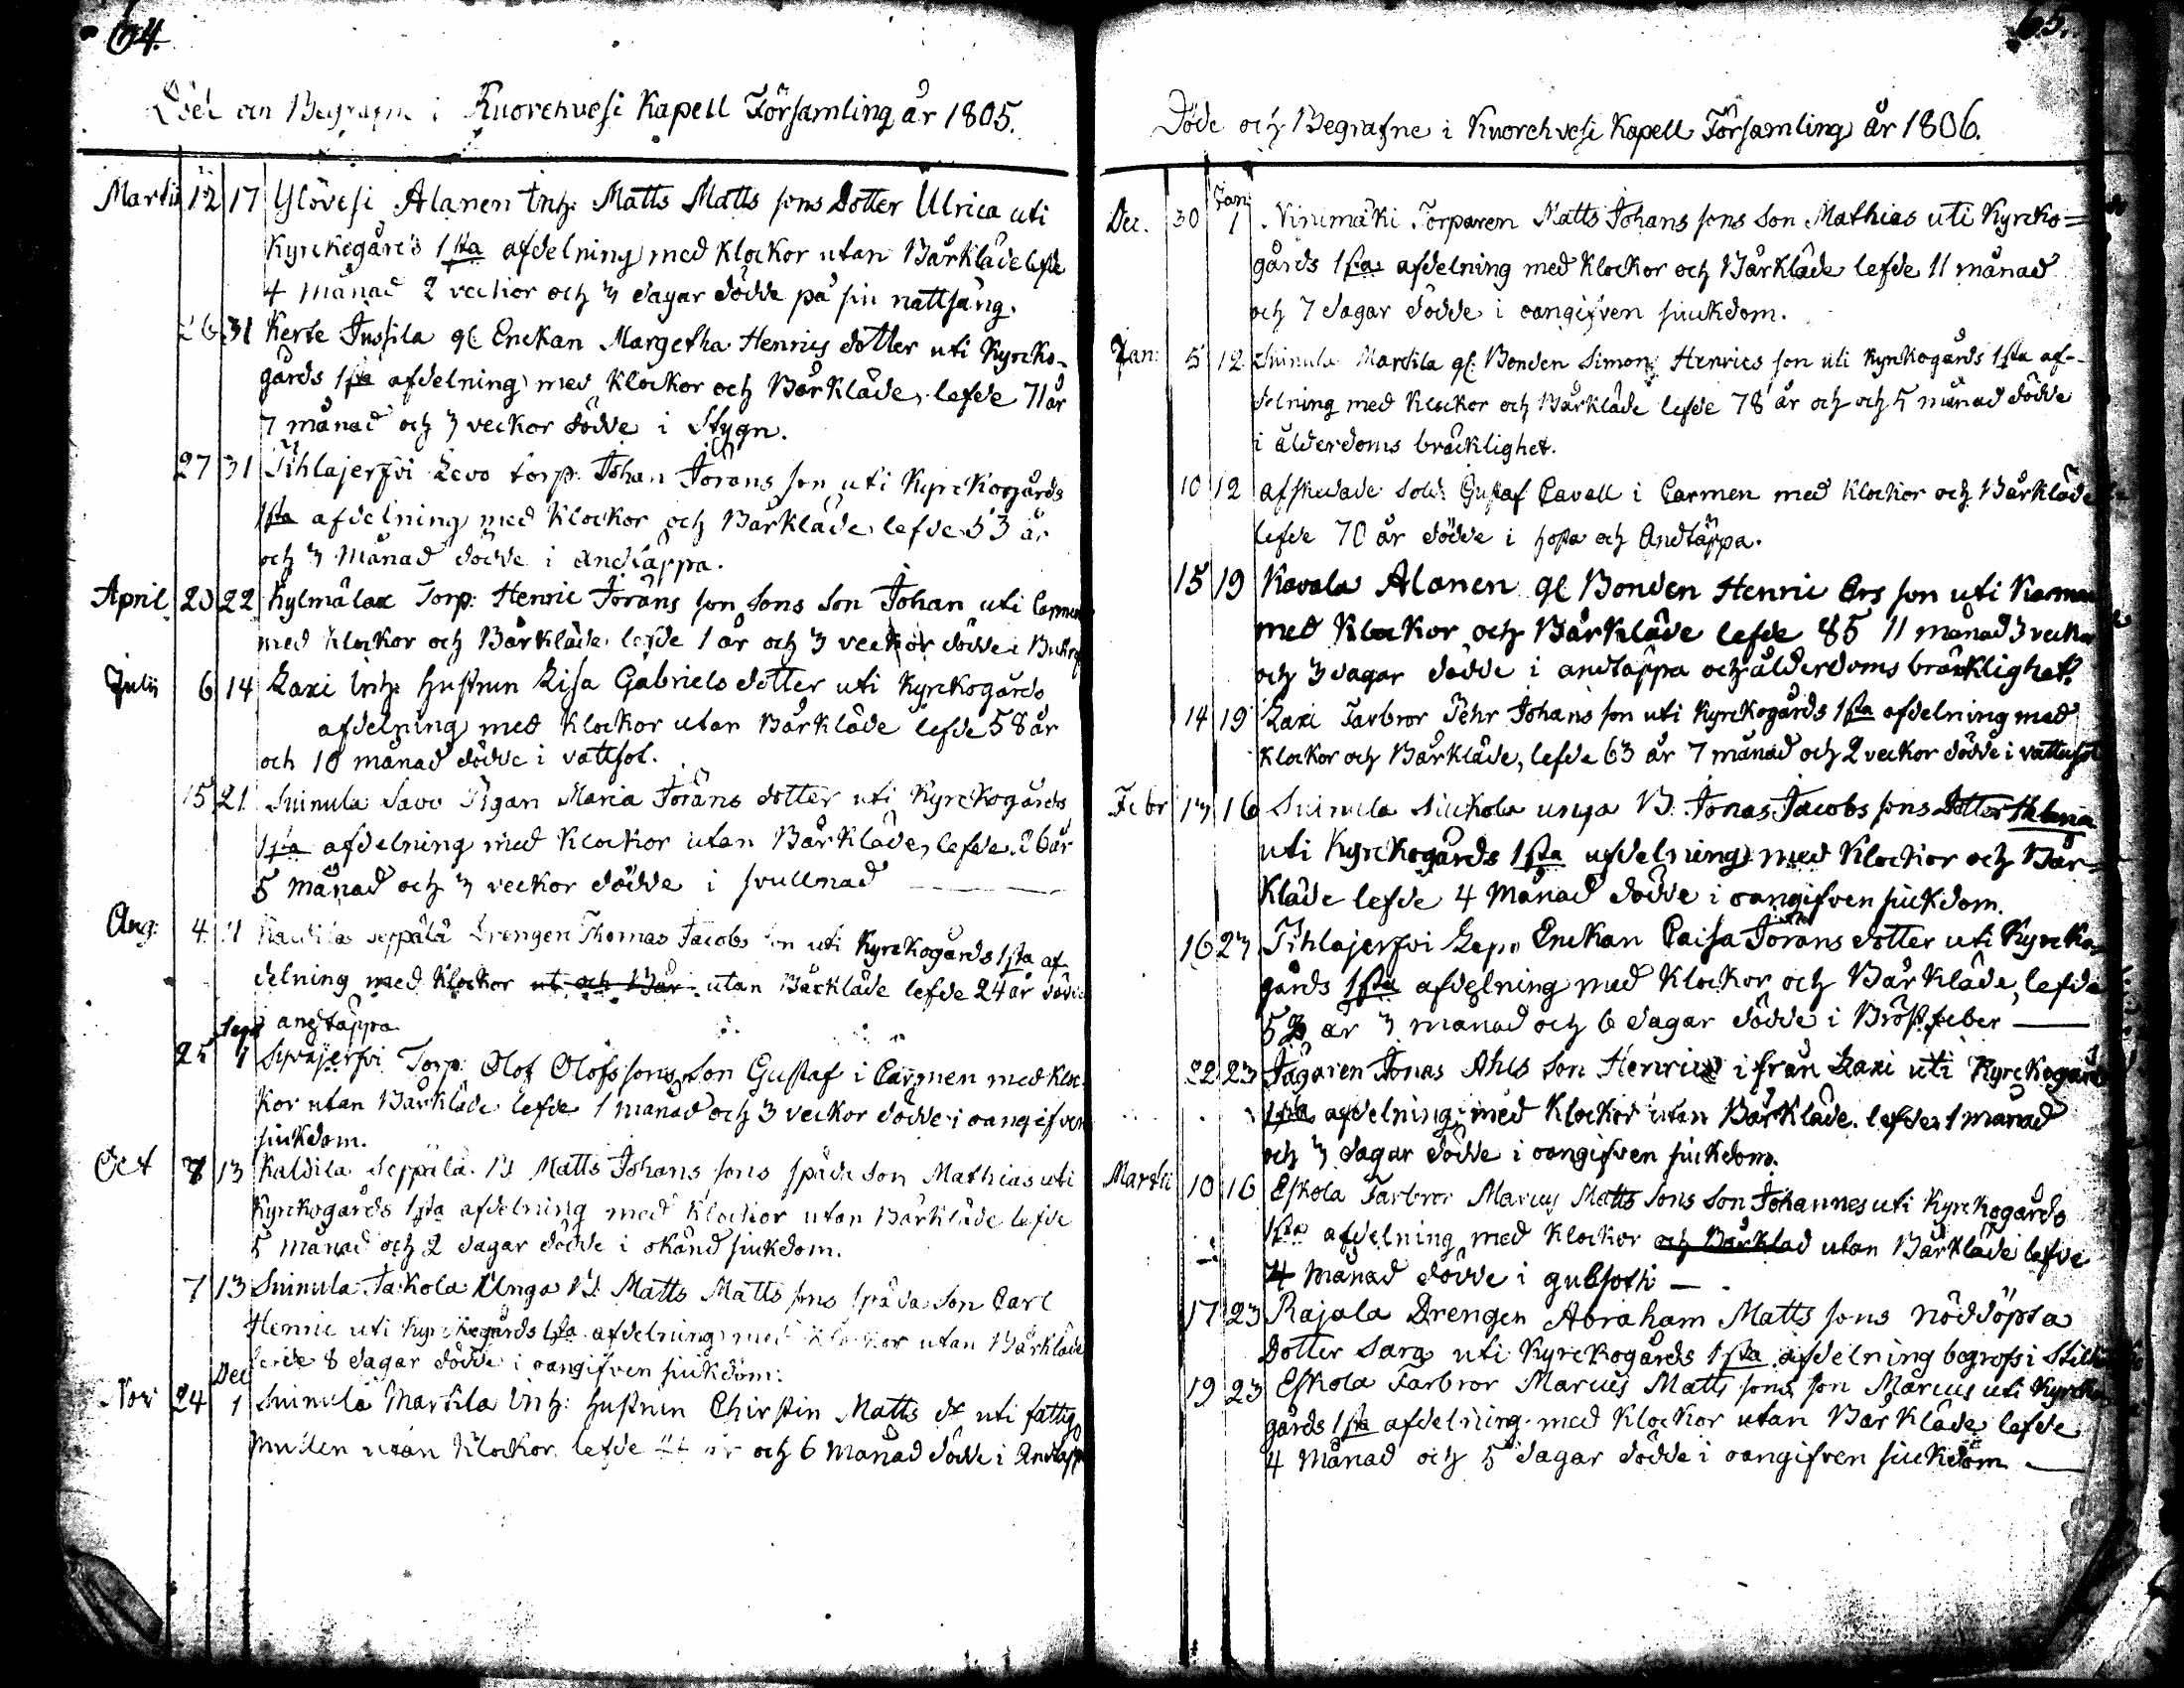 64.
Döde och Begrafne i Kuorehvesi Kapell Församling år 1805.
Martii 12 17 Ylövesi Alanen Inh: Matts Matts sons Dotter Ulrica uti
Kyrckogårds 1sta afdelning med klockor utan Bårkläde lefde
4 månad 2 veckor och 3 dagar dödde på sin nattsäng.
26 31 Kerte Jussila gl: Enckan Margetha Henrics dotter uti Kyrcko-
gårds 1sta afdelning med klockor och Bårkläde, lefde 71 år
7 månad och 3 veckor dödde i Stygn.
27 31 Tihlajerfvi Levo torp: Johan Jörans son uti Kyrckogårds
1sta afdelning med klockor och Bårkläde lefde 53 år
och 3 Månad dödde i andtäppa.
April 20 22 Kylmälax Torp: Henric Jörans son sons son Johan uti Carmen
med klockor och Bårkläde lefde 1 år och 3 veckor dödde i
Julii 6 14 Laxi Inh: hustrun Lisa Gabriels dotter uti Kyrckogårds
afdelning med klockor utan Bårkläde lefde 58 år
och 10 månad dödde i vattsot.
15 21 Suinula Savo Pigan Maria Jörans dotter uti Kyrckogårds
1sta afdelning med klockor utan Bårkläde, lefde 26 år
5 Månad och 3 veckor dödde i svullnad
Aug: 4 11 Kaldila Seppälä Drengen Thomas Jacobs son uti Kyrckogårds 1sta af
delning med klockor ut och Bår utan Bårkläde lefde 24 år dödde
i andtäppa
25 Sept 1 Syväjerfvi Torp: Olof Olofs sons son Gustaf i Carmen med kloc-
kor utan Bårkläde lefde 1 månad och 3 veckor dödde i oangifven
siukdom.
Oct 7 13 Kaldila Seppälä B: Matts Johans sons späda son Mathias uti
Kyrckogårds 1sta afdelning med klockor utan Bårkläde lefde
5 månad och 2 dagar dödde i okänd siukdom.
7 13 Suinula Jackola Unga B: Matts Matts sons späda son Carl
Henric uti Kyrckogårds 1sta afdelning med klockor utan Bårkläde
lefde 8 dagar dödde i oangifven siukdom.
Nov 24 Dec 1 Suinula Marttila Inh: hustrun Chirstin Matts dr uti fattig
mullen utan klockor lefde år och 6 Månad dödde i Andtäpp
65.
Döde och Begrafne i Kuorehvesi Kapell Församling år 1806.
Dec. 30 Jan 1 Ninimäki Torparen Matts Johans sons son Mathias uti Kyrcko=
gårds 1sta afdelning med klockor och Bårkläde lefde 11 månad
och 7 dagar dödde i oangifven siuckdom.
Jan: 5 12 Suinula Marttila gl: Bonden Simon Henrics son uti Kyrckogårds 1sta af-
delning med klockor och Bårkläde lefde 78 år och och 5 månad dödde
i ålderdoms bräcklighet.
10 12 afskedade Sold: Gustaf Cavall i Carmen med klockor och Bårkläde
lefde 70 år dödde i hosta och Andtäppa.
15 19 Kavala Alanen gl Bonden Henric Ers son uti Karmen
med klockor och Bårkläde lefde 85 11 månad 3 veckor
och 3 dagar dödde i andtäppa och ålderdoms bräcklighet.
14 19 Laxi Farbror Pehr Johans son uti Kyrckogårds 1sta afdelning med
klockor och Bårkläde, lefde 63 år 7 månad och 2 veckor dödde i vattusot
Febr 13 16 Suinula Siuckola unga B: Jonas Jacobs sons Dotter Helena
uti Kyrckogårds 1sta afdelning med klockor och Bår=
kläde lefde 4 Månad dödde i oangifven siuckdom.
16 23 Tihlajerfvi Lepo Enckan Caisa Jörans dotter uti Kyrcko=
gårds 1sta afdelning med klockor och Bårkläde, lefde
5 år 3 månad och 6 dagar dödde i Bröstfeber
22 23 Jägaren Jonas Ahls son Henric ifrån Laxi uti Kyrckogårds
1sta afdelning med klockor utan Bårkläde lefde 1 månad
och 3 dagar dödde i oangifven siuckdom.
Martii 10 16 Eskola Farbror Marcus Matts sons son Johannes uti Kyrckogårds
1sta afdelning med klockor och Bårkläd utan Bårkläde lefde
4 Månad dödde i gulsoth
17 23 Rajala Drengen Abraham Matts sons nöddöpta
Dotter Sara uti Kyrckogårds 1sta afdelning begrofs i
19 23 Eskola Farbror Marcus Matts sons son Marcus uti Kyrcko
gårds 1sta afdelning med klockor utan Bårkläde lefde
4 Månad och 5 dagar dödde i oangifven siuckdom